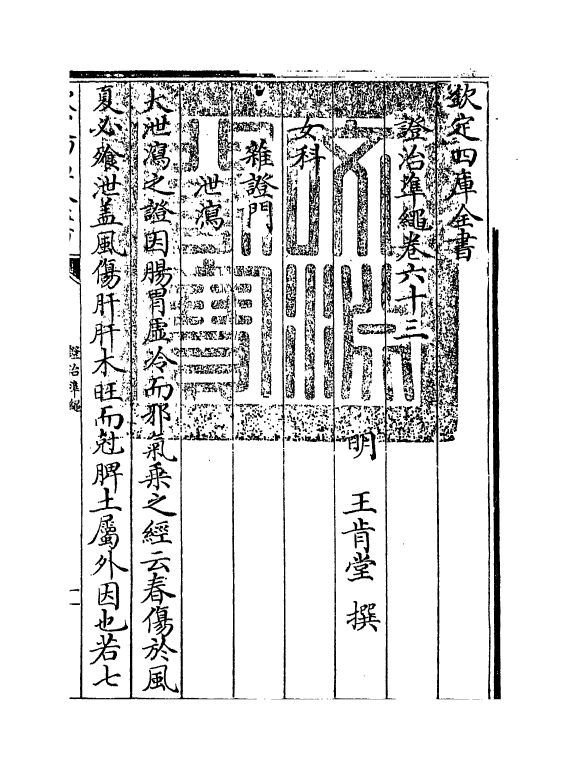 欽定四庫全書
證治準繩卷六十三
明 王肯堂 撰
女科
雜證門
泄瀉
大泄瀉之證因腸胃虛冷而邪氣乗之經云春傷於風
夏必飱泄盖風傷肝肝木旺而尅脾土屬外因也若七
證治準繩